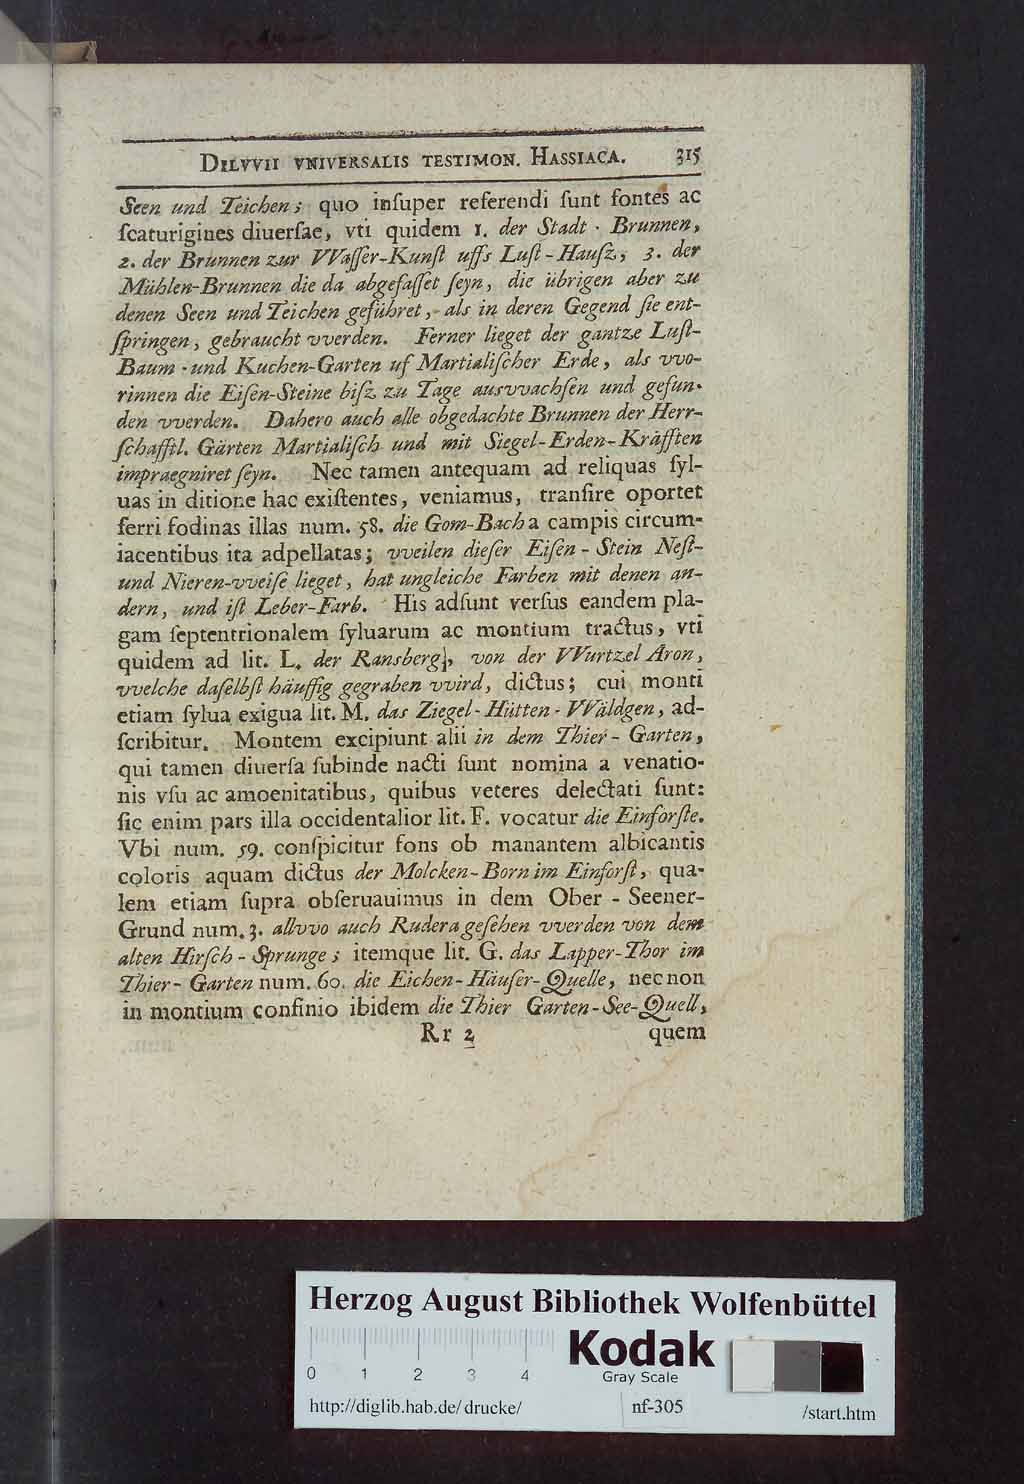 DILVVII VNIVERSALIS TESTIMON. HASSIACA. 315
Seen und Teichen; quo inſuper referendi ſunt fontes ac
ſcaturigines diuerſae, vti quidem 1. der Stadt - Brunnen,
2. der Brunnen zur VVaſſer-Kunſt uffs Luſt-Hauſz, 3. der
Mühlen-Brunnen die da abgefaſſet ſeyn, die übrigen aber zu
denen Seen und Teichen geführet, als in deren Gegend ſie ent-
ſpringen, gebraucht vverden. Ferner lieget der gantze Luſt-
Baum - und Kuchen-Garten uf Martialiſcher Erde, als vvo-
rinnen die Eiſen-Steine biſz zu Tage ausvvachſen und gefun-
den vverden. Dahero auch alle obgedachte Brunnen der Herr-
ſchafftl. Gärten Martialiſch und mit Siegel-Erden-Kräfften
impraegniret ſeyn. Nec tamen antequam ad reliquas ſyl-
uas in ditione hac exiſtentes, veniamus, tranſire oportet
ferri fodinas illas num. 58. die Gom-Bach a campis circum-
iacentibus ita adpellatas; vveilen dieſer Eiſen - Stein Neſt-
und Nieren-vveiſe lieget, hat ungleiche Farben mit denen an-
dern, und iſt Leber-Farb. His adſunt verſus eandem pla-
gam ſeptentrionalem ſyluarum ac montium tractus, vti
quidem ad lit. L. der Ransberg, von der VVurtzel Aron,
vvelche daſelbſt häuffig gegraben vvird, dictus; cui monti
etiam ſylua exigua lit. M. das Ziegel-Hütten-VVäldgen, ad-
ſcribitur. Montem excipiunt alii in dem Thier - Garten,
qui tamen diuerſa ſubinde nacti ſunt nomina a venatio-
nis vſu ac amoenitatibus, quibus veteres delectati ſunt:
ſic enim pars illa occidentalior lit. F. vocatur die Einforſte.
Vbi num. 59. conſpicitur fons ob manantem albicantis
coloris aquam dictus der Molcken-Born im Einforſt, qua-
lem etiam ſupra obſeruauimus in dem Ober - Seener-
Grund num. 3. allvvo auch Rudera geſehen vverden von dem
alten Hirſch - Sprunge; itemque lit. G. das Lapper-Thor im
Thier- Garten num. 60. die Eichen-Häuſer-Quelle, nec non
in montium confinio ibidem die Thier Garten-See-Quell,
Rr 2 quem
Herzog August Bibliothek Wolfenbüttel
Kodak
Gray Scale
0 1 2 3 4
http://diglib.hab.de/drucke/ nf-305 /start.htm